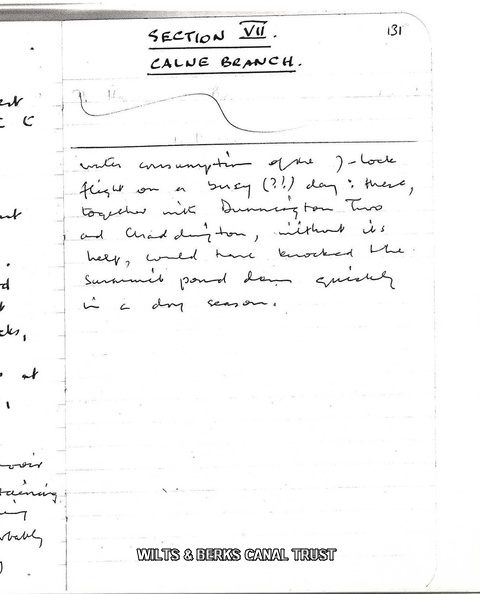 SECTION VII.
131
CALNE BRANCH.
water consumption of the 7-lock
flight on a busy (?!) day : these,
together with Dunnington Two
and Chaddington, without its
help, would have knocked the
summit pond down quickly
in a dry season.
WILTS & BERKS CANAL TRUST